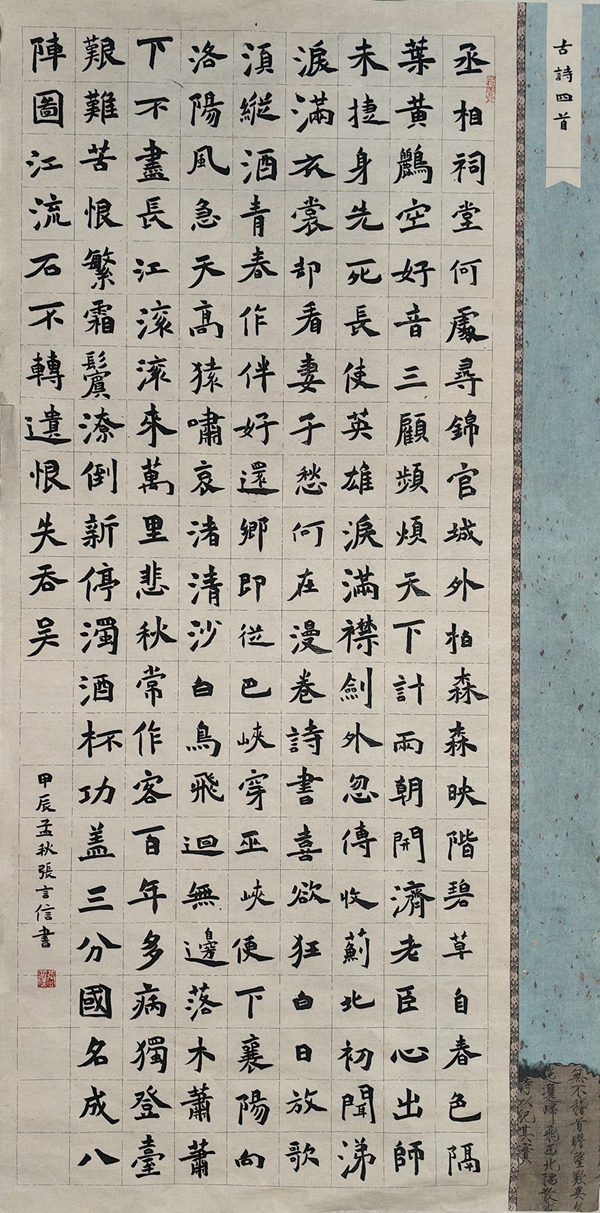 古詩四首
丞相祠堂何處尋錦官城外柏森森映階碧草自春色隔
葉黃鸝空好音三顧頻煩天下計兩朝開濟老臣心出師
未捷身先死長使英雄淚滿襟劍外忽傳收薊北初聞涕
淚滿衣裳却看妻子愁何在漫卷詩書喜欲狂白日放歌
須縱酒青春作伴好還鄉即從巴峽穿巫峽便下襄陽向
洛陽風急天高猿嘯哀渚清沙白鳥飛迴無邊落木蕭蕭
下不盡長江滾滾來萬里悲秋常作客百年多病獨登臺
艱難苦恨繁霜鬢潦倒新停濁酒杯功盖三分國名成八
陣圖江流石不轉遺恨失吞吳
甲辰孟秋張言信書